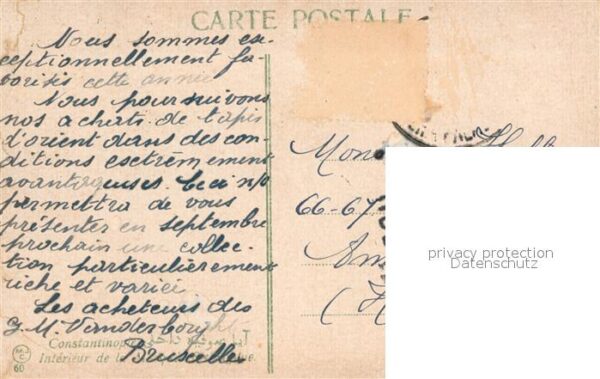 CARTE POSTALE
Nous sommes ex-
ceptionnellement fa-
vorisés cette année
Nous poursuivons
nos achats de tapis
d'orient dans des con-
ditions esctrèmement
avantageuses. Ceci n/s
permettra de vous
présenter en septembre
prochain une collec-
tion particulièrement
riche et variée
Les acheteurs des
J. M. Vanderborght
Bruxelles
Constantinople
Intérieur de la
60
Mons
66-67
Am
(H
privacy protection
Datenschutz